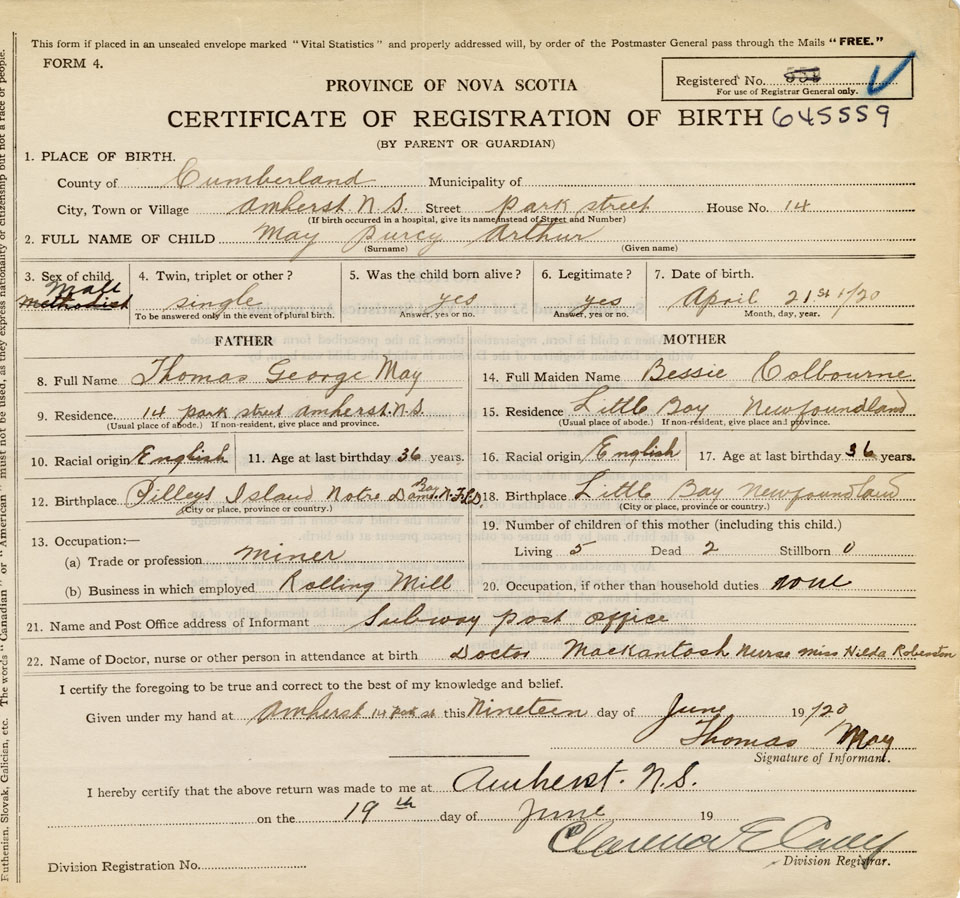 This form if placed in an unsealed envelope marked "Vital Statistics" and properly addressed will, by order of the Postmaster General pass through the Mails "FREE."
FORM 4.
Registered No. 
For use of Registrar General only.
PROVINCE OF NOVA SCOTIA
CERTIFICATE OF REGISTRATION OF BIRTH 645559
(BY PARENT OR GUARDIAN)
1. PLACE OF BIRTH.
County of Cumberland Municipality of
City, Town or Village Amherst N.S. Street Park street House No. 14
(If birth occurred in a hospital, give its name instead of Street and Number)
2. FULL NAME OF CHILD May purcy Arthur
(Surname) (Given name)
3. Sex of child 4. Twin, triplet or other? 5. Was the child born alive? 6. Legitimate? 7. Date of birth.
Male
Methodist single yes yes April 21st 1/20
To be answered only in the event of plural birth. Answer, yes or no. Answer, yes or no. Month, day, year.
FATHER MOTHER
8. Full Name Thomas George May 14. Full Maiden Name Bessie Colbourne
9. Residence 14 park street Amherst. N.S 15. Residence Little Bay Newfoundland
(Usual place of abode.) If non-resident, give place and province. (Usual place of abode.) If non-resident, give place and province.
10. Racial origin English 11. Age at last birthday 36 years. 16. Racial origin English 17. Age at last birthday 36 years.
12. Birthplace Pilleys Island Notre Dame Bay N.F.L.D. 18. Birthplace Little Bay Newfoundland
(City or place, province or country.) (City or place, province or country.)
13. Occupation:— 19. Number of children of this mother (including this child.)
(a) Trade or profession miner Living 5 Dead 2 Stillborn 0
(b) Business in which employed Rolling Mill 20. Occupation, if other than household duties none
21. Name and Post Office address of Informant Subway post office
22. Name of Doctor, nurse or other person in attendance at birth Doctor Mackantosh Nurse miss Hilda Roberston
I certify the foregoing to be true and correct to the best of my knowledge and belief.
Given under my hand at Amherst 14 Park st this Nineteen day of June 19 1/20
Thomas May
Signature of Informant.
I hereby certify that the above return was made to me at Amherst. N.S.
on the 19th day of June 19
Clarence E Casey
Division Registrar.
Division Registration No.
Ruthenian, Slovak, Galician, etc. The words "Canadian" or "American" must not be used, as they express nationality or citizenship but not a race or people.